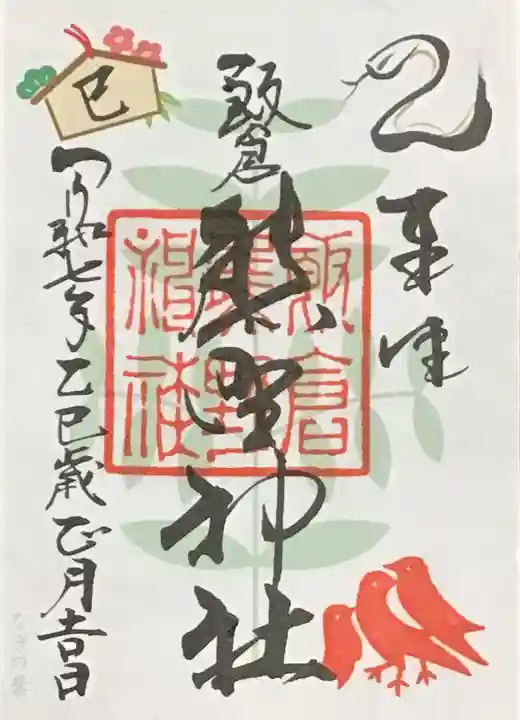 奉拝
飯倉
熊野神社
飯倉
熊野
神社
令和七年乙巳歳正月吉日
巳
なぎの葉